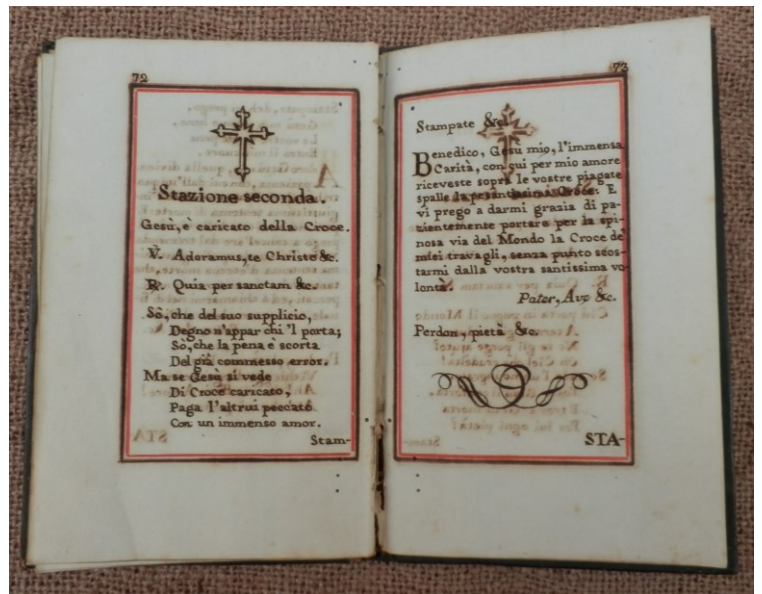 72
Stazione seconda.
Gesù, è caricato della Croce.
V. Adoramus, te Christe &c.
R. Quia per sanctam &c.
Sò, che del suo supplicio,
Degno n'appar chi 'l porta;
Sò, che la pena è scorta
Del già commesso error.
Ma se Gesù si vede
Di Croce caricato,
Paga l'altrui peccato
Con un immenso amor.
Stam-
73
Stampate &c.
Benedico, Gesu mio, l'immensa
Carità, con cui per mio amore
riceveste sopra le vostre piagate
spalle la pesantissima Croce: E
vi prego a darmi grazia di pa-
zientemente portare per la spi-
nosa via del Mondo la Croce de'
miei travagli, senza punto scos-
tarmi dalla vostra santissima vo-
lontà.
Pater, Ave &c.
Perdon, pietà &c.
STA-